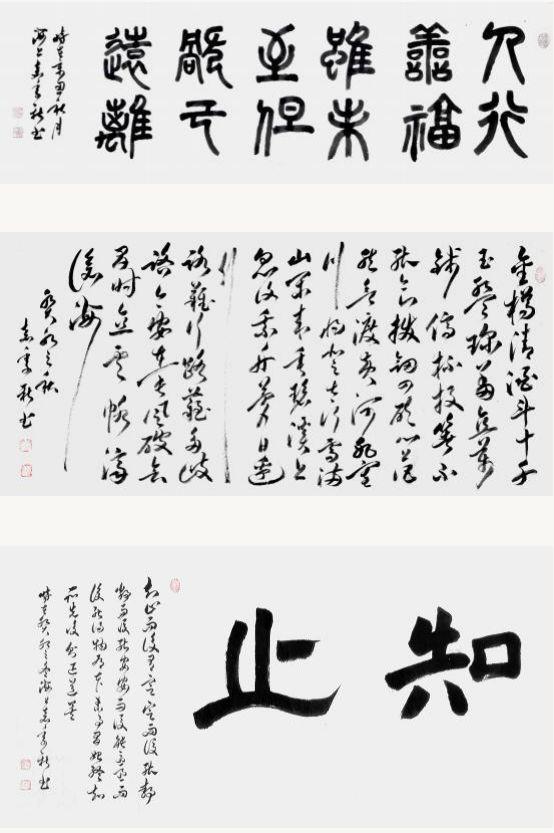 人行
善福
雖未
至但
禍已
遠離
金樽清酒斗十千
玉盤珍羞直萬
錢停杯投箸不
能食拔劍四顧心茫
然欲渡黃河冰塞
川將登太行雪滿
山閒來垂碧溪上
忽復乘舟夢日邊
行
路難行路難多歧
路今安在長風破浪會
有時直掛雲帆濟
滄海
癸卯之秋
知止
知止而後有定定而後能靜
靜而後能安安而後能慮慮而
後能得物有本末事有終始知
所先後則近道矣
時在癸卯之冬海上